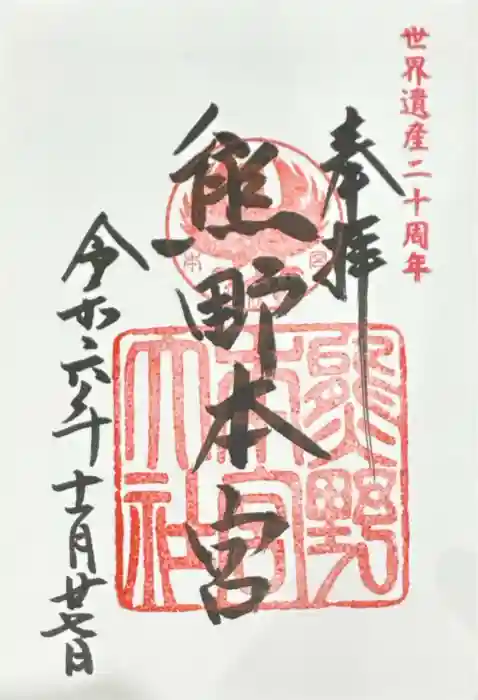 世界遺産二十周年
奉拝
熊野本宮
令和六年十一月廿七日
熊野
本宮
大社